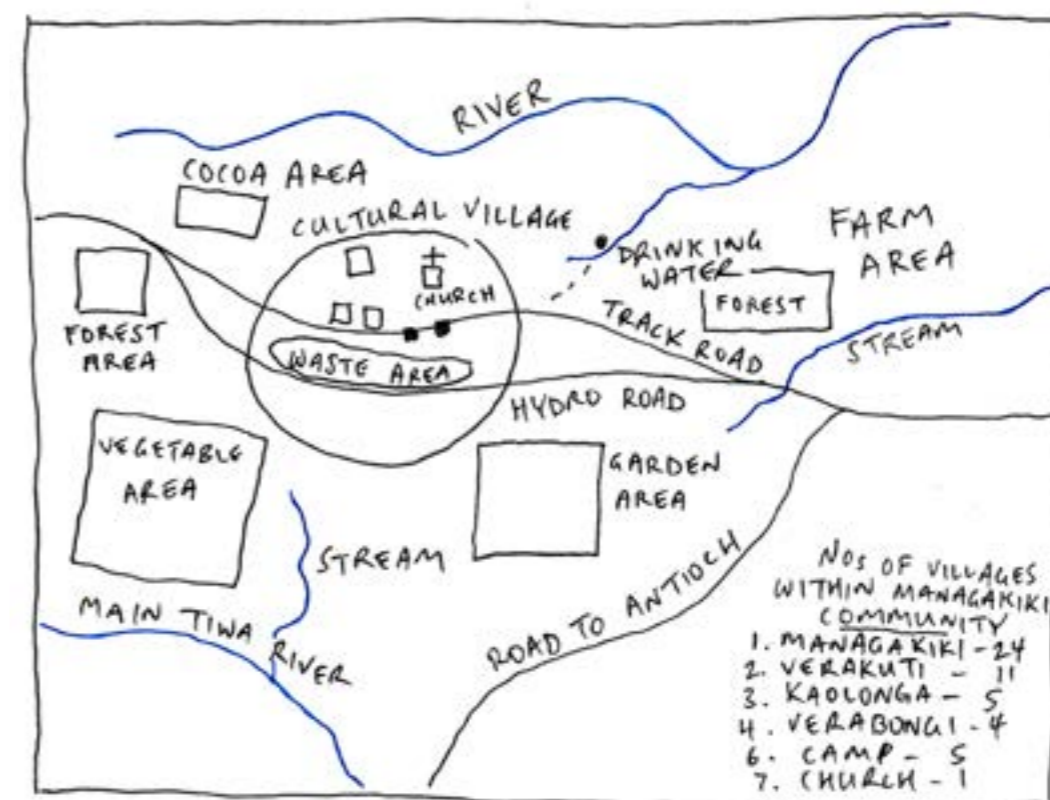 RIVER
COCOA AREA
CULTURAL VILLAGE
FARM
AREA
DRINKING
WATER
CHURCH
FOREST
FOREST
AREA
TRACK ROAD
STREAM
WASTE AREA
HYDRO ROAD
VEGETABLE
AREA
GARDEN
AREA
STREAM
MAIN TIWA RIVER
ROAD TO ANTIOCH
NOS OF VILLAGES
WITHIN MANAGAKIKI
COMMUNITY
1. MANAGAKIKI - 24
2. VERAKUTI - 11
3. KAOLONGA - 5
4. VERABONGI - 4
6. CAMP - 5
7. CHURCH - 1